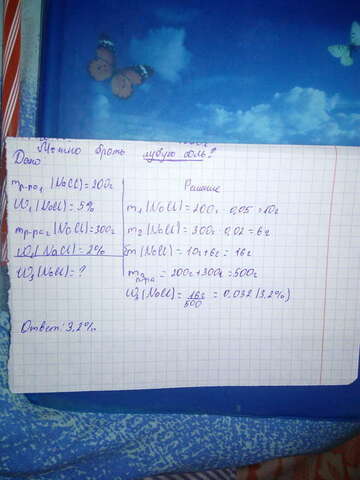 Можно брать любую соль?
Дано
mр-ра1 (NaCl) = 200г
W1 (NaCl) = 5%
mр-ра2 (NaCl) = 300г
W2 (NaCl) = 2%
W3 (NaCl) = ?
Решение
m1 (NaCl) = 200г · 0,05 = 10г
m2 (NaCl) = 300г · 0,02 = 6г
m (NaCl) = 10г + 6г = 16г
m3 р-ра = 200г + 300г = 500г
W3 (NaCl) = 16г / 500 = 0,032 (3,2%)
Ответ: 3,2%